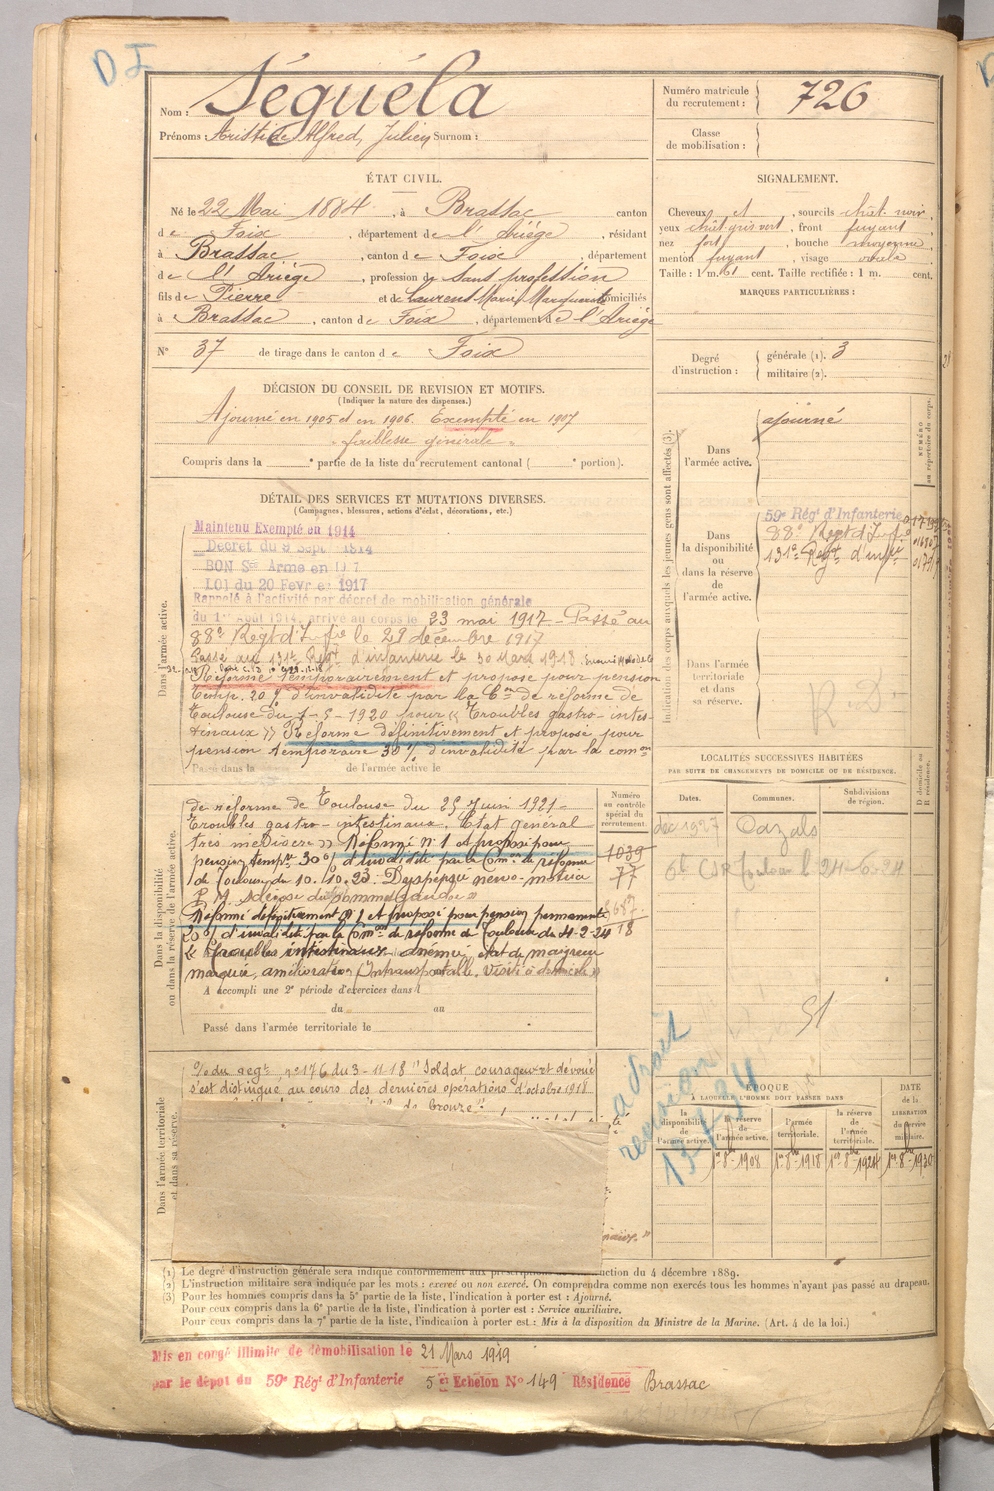 D I
Nom : Séguéla
Prénoms : Aristide Alfred, Julien Surnom :
Numéro matricule du recrutement : 726
Classe de mobilisation :
ÉTAT CIVIL.
Né le 22 Mai 1884, à Brassac canton
de Foix, département de l'Ariège, résidant
à Brassac, canton de Foix, département
de l'Ariège, profession de Sans profession
fils de Pierre et de Laurent Marie Marguerite domiciliés
à Brassac, canton de Foix, département de l'Ariège
N° 37 de tirage dans le canton de Foix
SIGNALEMENT.
Cheveux et, sourcils chât. noir,
yeux chât. gris vert, front fuyant
nez fort, bouche moyenne,
menton fuyant, visage ovale
Taille : 1 m. 61 cent. Taille rectifiée : 1 m. cent.
MARQUES PARTICULIÈRES :
Degré d'instruction : générale (1). 3
militaire (2).
DÉCISION DU CONSEIL DE REVISION ET MOTIFS.
(Indiquer la nature des dispenses.)
Ajourné en 1905 et en 1906. Exempté en 1907
" faiblesse générale "
Compris dans la e partie de la liste du recrutement cantonal ( e portion).
DÉTAIL DES SERVICES ET MUTATIONS DIVERSES.
(Campagnes, blessures, actions d'éclat, décorations, etc.)
Dans l'armée active.
Maintenu Exempté en 1914
Décret du 9 Sept 1914
BON Sce Armé en 1917
LOI du 20 Février 1917
Rappelé à l'activité par décret de mobilisation générale
du 1er Août 1914, arrivé au corps le 23 mai 1917 - Passé au
88e Regt d'Infie le 28 décembre 1917
Passé au 131e Regt d'infanterie le 30 Mars 1918
Réformé temporairement et proposé pour pension
temp. 20 % d'invalidité par la Con de réforme de
Toulouse du 7-5-1920 pour « Troubles gastro-intes-
tinaux » Réformé définitivement et proposé pour
pension temporaire 30 % d'invalidité par la comon
Passé dans la de l'armée active le
Dans la disponibilité ou dans la réserve de l'armée active.
de réforme de Toulouse du 25 Juin 1921 -
Troubles gastro-intestinaux. Etat général
très médiocre » Réformé n° 1 et proposé pour
pension tempre 30 % d'invalidité par la Comon de réforme
de Toulouse du 10.10.23. Dyspepsie nervo-motrice
Réformé définitivement n° 1 et proposé pour pension permanente
30 % d'invalidité par la Comon de réforme de Toulouse du 4-2-24
« Troubles intestinaux anémie, état de maigreur
marquée, amélioration (Intransportable, visité à domicile) »
A accompli une 2e période d'exercices dans l
du au
Passé dans l'armée territoriale le
Numéro au contrôle spécial du recrutement.
1039
77
18
Dans l'armée territoriale et dans sa réserve.
O/ du regt n° 176 du 3-11-18 "Soldat courageux et dévoué
s'est distingué au cours des dernières opérations d'octobre 1918
de bronze".
Indication des corps auxquels les jeunes gens sont affectés (3).
Dans l'armée active.
ajourné
Dans la disponibilité ou dans la réserve de l'armée active.
59e Régt d'Infanterie
88e Regt d'Infie
131e Regt d'infie
Dans l'armée territoriale et dans sa réserve.
R.D
NUMÉRO au répertoire du corps.
LOCALITÉS SUCCESSIVES HABITÉES
PAR SUITE DE CHANGEMENTS DE DOMICILE OU DE RÉSIDENCE.
Dates. Communes. Subdivisions de région. D domicile ou R résidence.
dec 1927 Cazals
51
a droit
13-7-34
ÉPOQUE
À LAQUELLE L'HOMME DOIT PASSER DANS
la disponibilité de l'armée active. la réserve de l'armée active. l'armée territoriale. la réserve de l'armée territoriale.
DATE de la LIBÉRATION du service militaire.
1er 8bre 1908 1er 8bre 1918 1er 8bre 1924 1er 8bre 1930
(1) Le degré d'instruction générale sera indiqué conformément aux prescriptions uction du 4 décembre 1889.
(2) L'instruction militaire sera indiquée par les mots : exercé ou non exercé. On comprendra comme non exercés tous les hommes n'ayant pas passé au drapeau.
(3) Pour les hommes compris dans la 5e partie de la liste, l'indication à porter est : Ajourné.
Pour ceux compris dans la 6e partie de la liste, l'indication à porter est : Service auxiliaire.
Pour ceux compris dans la 7e partie de la liste, l'indication à porter est : Mis à la disposition du Ministre de la Marine. (Art. 4 de la loi.)
Mis en congé illimité de démobilisation le 21 Mars 1919
par le dépôt du 59e Régt d'Infanterie 5e Echelon N° 149 Résidence Brassac